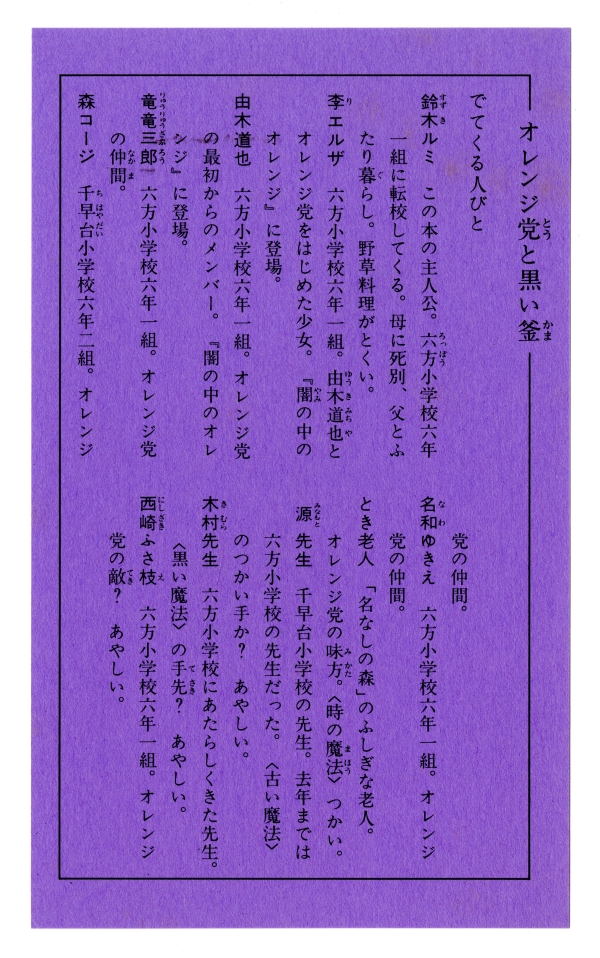 オレンジ党と黒い釜
でてくる人びと
鈴木ルミ　この本の主人公。六方小学校六年
一組に転校してくる。母に死別、父とふ
たり暮らし。野草料理がとくい。
李エルザ　六方小学校六年一組。由木道也と
オレンジ党をはじめた少女。『闇の中の
オレンジ』に登場。
由木道也　六方小学校六年一組。オレンジ党
の最初からのメンバー。『闇の中のオレ
ンジ』に登場。
竜竜三郎　六方小学校六年一組。オレンジ党
の仲間。
森コージ　千早台小学校六年二組。オレンジ
党の仲間。
名和ゆきえ　六方小学校六年一組。オレンジ
党の仲間。
とき老人　「名なしの森」のふしぎな老人。
オレンジ党の味方。〈時の魔法〉つかい。
源先生　千早台小学校の先生。去年までは
六方小学校の先生だった。〈古い魔法〉
のつかい手か？　あやしい。
木村先生　六方小学校にあたらしくきた先生。
〈黒い魔法〉の手先？　あやしい。
西崎ふさ枝　六方小学校六年一組。オレンジ
党の敵？　あやしい。